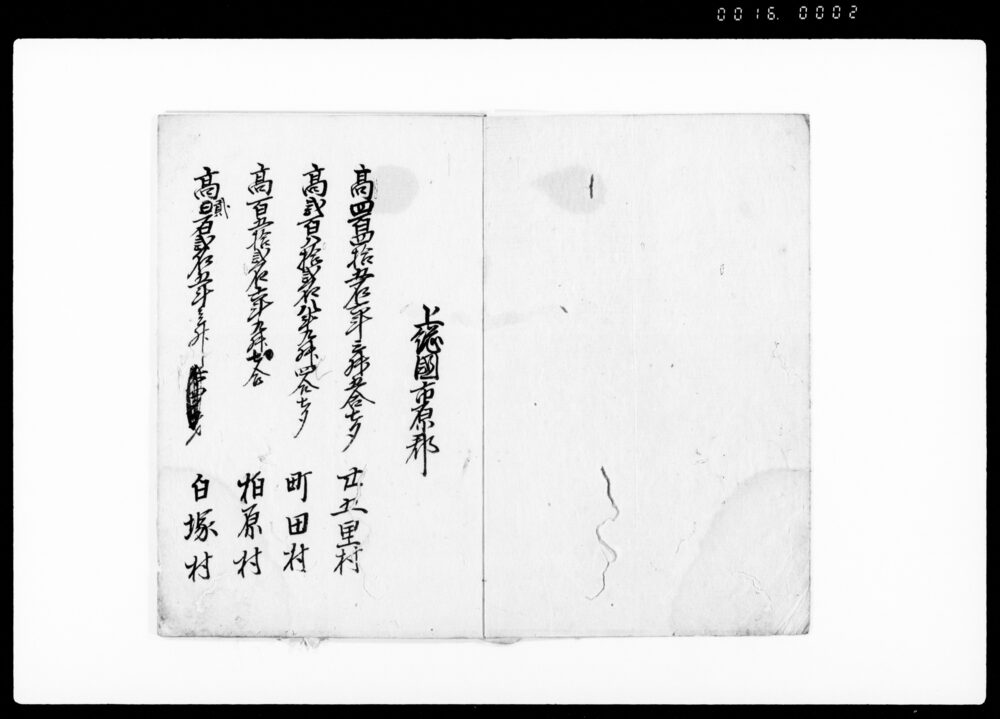 0016. 0002
上総國市原郡
高四百四拾五石六斗三升五合七夕 廿五里村
高弐百八拾弐石八斗九升四合七夕 町田村
高百五拾弐石六斗九升七合 柏原村
高 貳百弐石五斗三升 白塚村